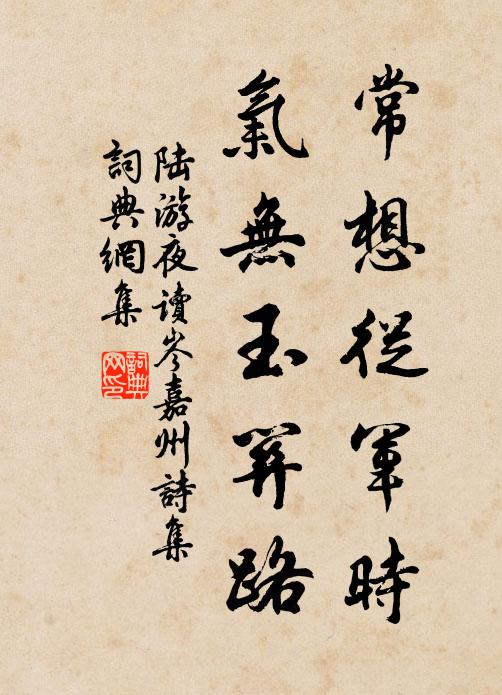 常想從軍時
氣無玉關路
陸游夜讀岑嘉州詩集
詞典網集
詞典
网印